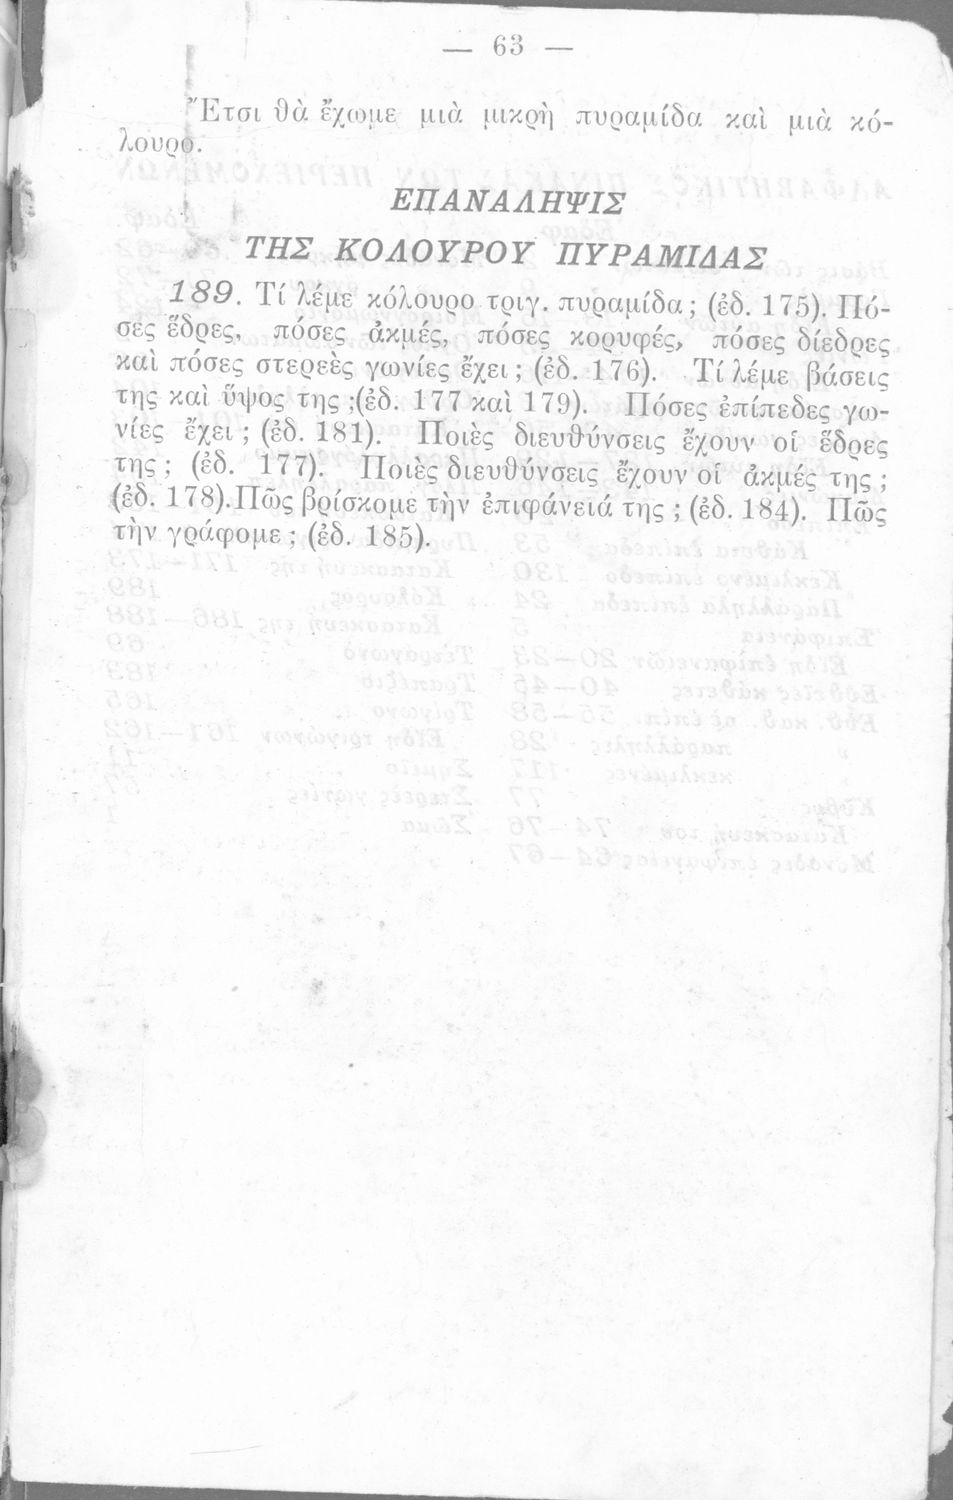 — 63 —
Ἔτσι θὰ ἔχωμε μιὰ μικρὴ πυραμίδα καὶ μιὰ κό-
λουρο.
ΕΠΑΝΑΛΗΨΙΣ
ΤΗΣ ΚΟΛΟΥΡΟΥ ΠΥΡΑΜΙΔΑΣ
189. Τί λέμε κόλουρο τριγ. πυραμίδα; (ἐδ. 175). Πό-
σες ἕδρες, πόσες ἀκμές, πόσες κορυφές, πόσες δίεδρες
καὶ πόσες στερεὲς γωνίες ἔχει; (ἐδ. 176). Τί λέμε βάσεις
της καὶ ὕψος της ;(ἐδ. 177 καὶ 179). Πόσες ἐπίπεδες γω-
νίες ἔχει ; (ἐδ. 181). Ποιὲς διευθύνσεις ἔχουν οἱ ἕδρες
της ; (ἐδ. 177). Ποιὲς διευθύνσεις ἔχουν οἱ ἀκμές της ;
(ἐδ. 178).Πῶς βρίσκομε τὴν ἐπιφάνειά της ; (ἐδ. 184). Πῶς
τὴν γράφομε ; (ἐδ. 185).